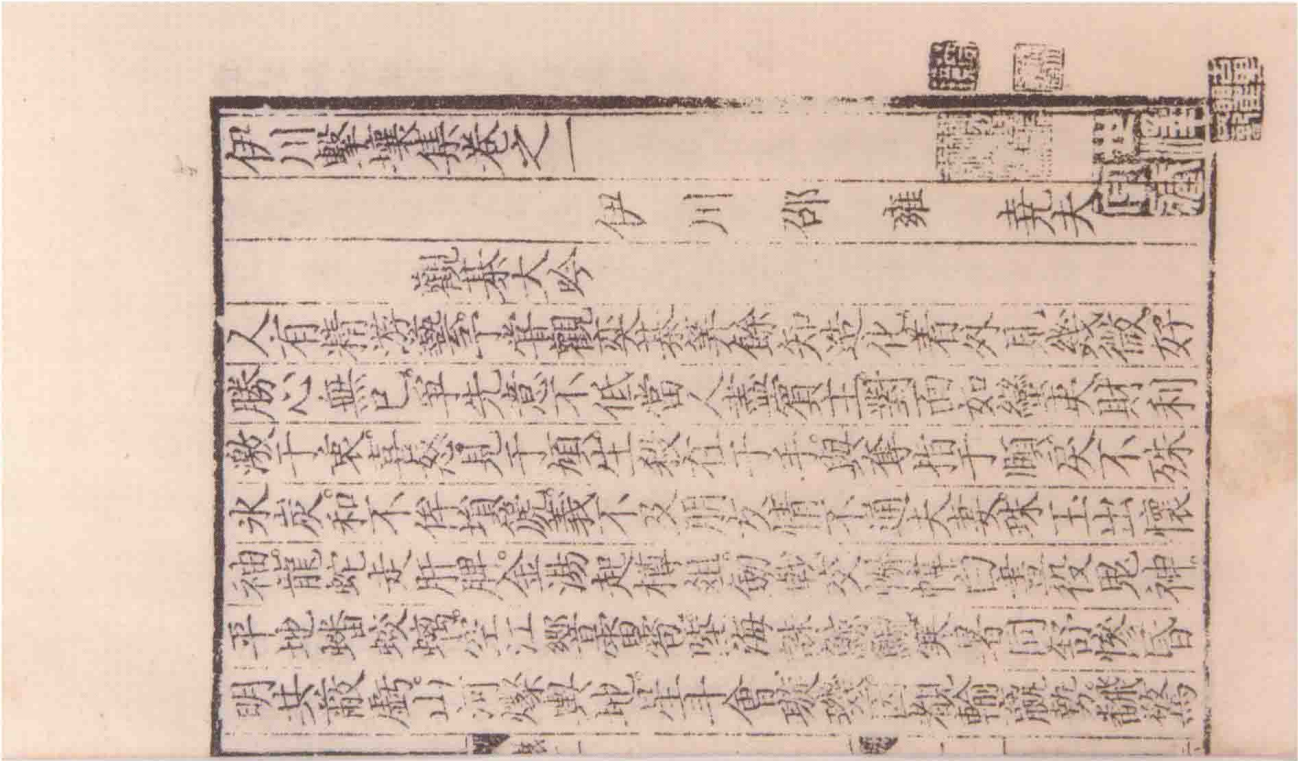 伊川擊壤集卷之一
伊川 邵 雍 堯夫
觀棊大吟
人有精游藝予嘗觀奕棊筭餘知造化著外見幾微好
勝心無已爭先意不低當人盡賓主對面如蠻夷財利
激于衷喜怒見于頄生殺在于手與奪指于頤戾不殊
冰炭和不侔塤篪義不及朋友情不通夫妻珠玉出懷
袖龍蛇走肝脾金湯起樽俎劍戟交幈幃白晝役鬼神
平地蟠蛟螭空江響雷雹陸海誅鯨鯢寒暑同舒慘昏
明共蔽虧山河燦輿地星斗會璇璣因覩輸贏勢飜驚